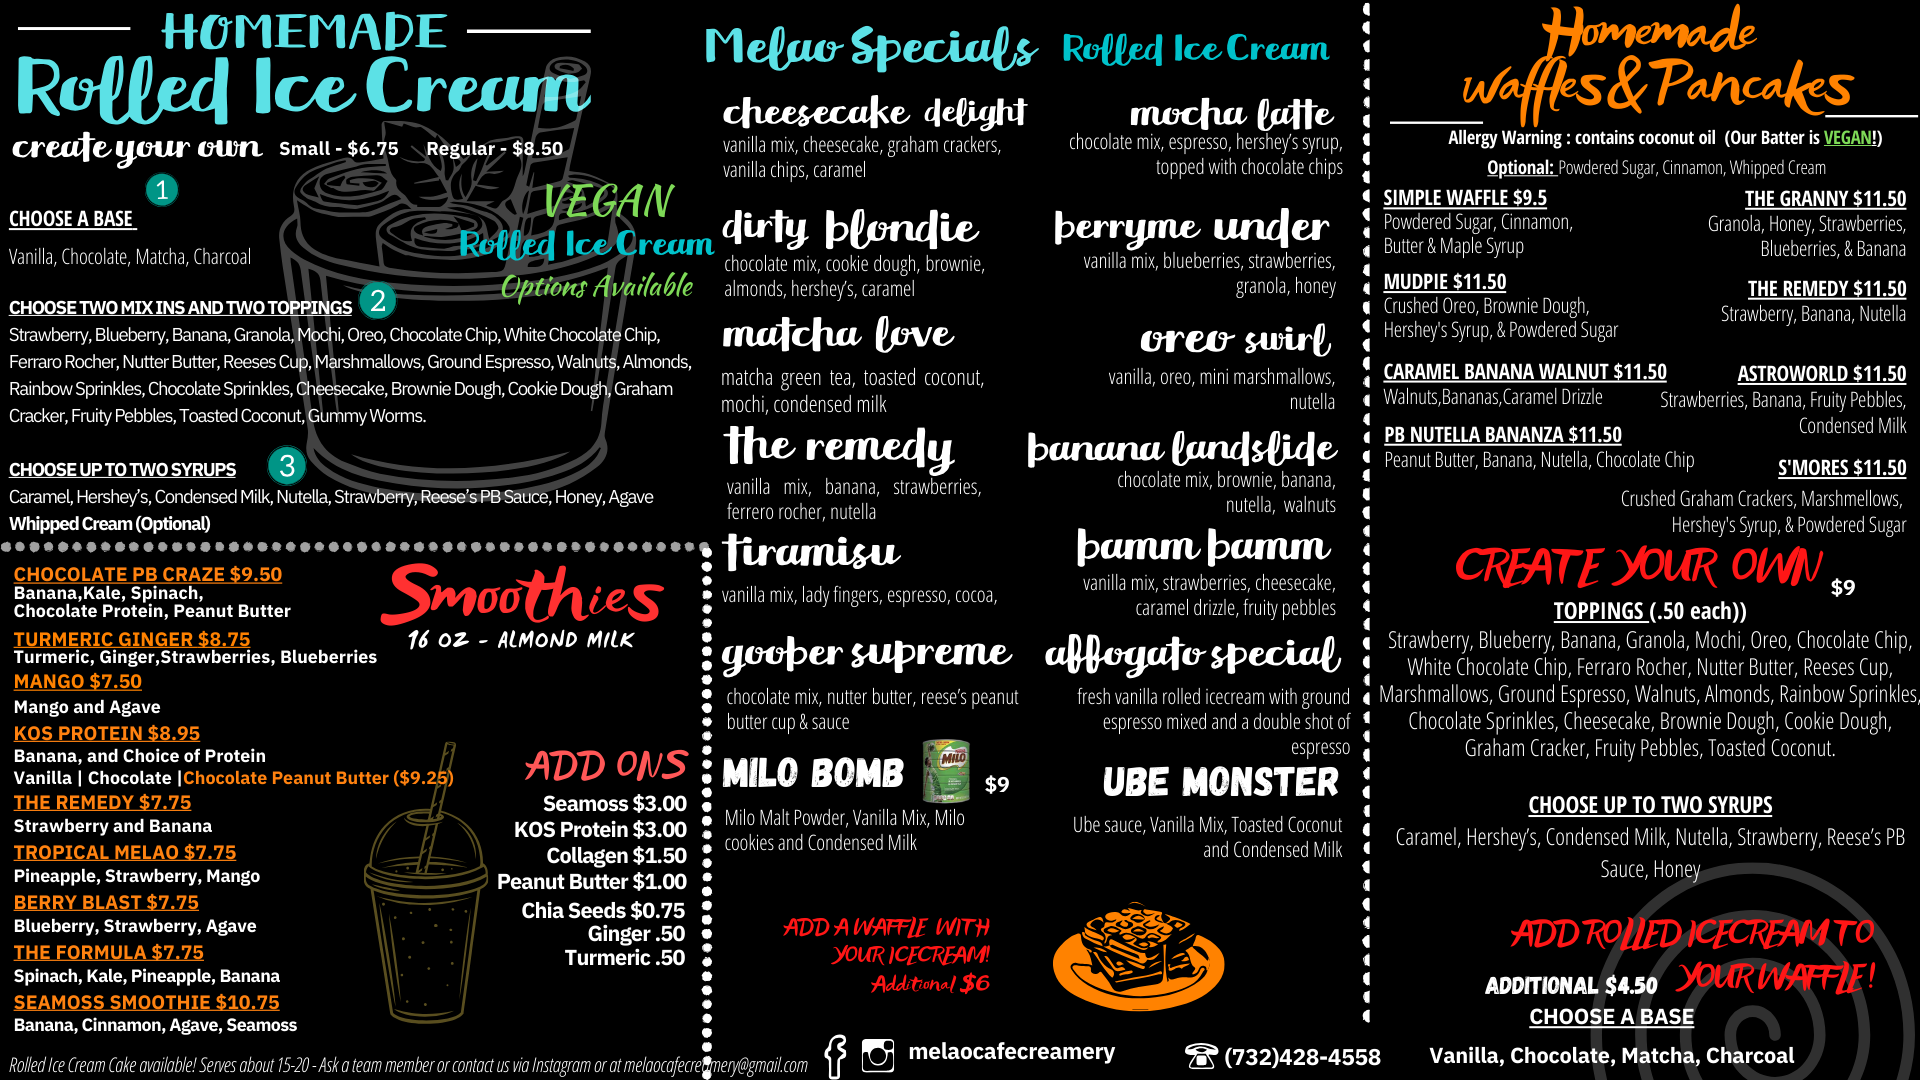 HOMEMADE
Rolled Ice Cream
create your own Small - $6.75 Regular - $8.50
1
CHOOSE A BASE
Vanilla, Chocolate, Matcha, Charcoal
VEGAN
Rolled Ice Cream
Options Available
CHOOSE TWO MIX INS AND TWO TOPPINGS 2
Strawberry, Blueberry, Banana, Granola, Mochi, Oreo, Chocolate Chip, White Chocolate Chip,
Ferraro Rocher, Nutter Butter, Reeses Cup, Marshmallows, Ground Espresso, Walnuts, Almonds,
Rainbow Sprinkles, Chocolate Sprinkles, Cheesecake, Brownie Dough, Cookie Dough, Graham
Cracker, Fruity Pebbles, Toasted Coconut, Gummy Worms.
CHOOSE UP TO TWO SYRUPS 3
Caramel, Hershey's, Condensed Milk, Nutella, Strawberry, Reese's PB Sauce, Honey, Agave
Whipped Cream (Optional)
CHOCOLATE PB CRAZE $9.50
Banana,Kale, Spinach,
Chocolate Protein, Peanut Butter
TURMERIC GINGER $8.75
Turmeric, Ginger,Strawberries, Blueberries
MANGO $7.50
Mango and Agave
KOS PROTEIN $8.95
Banana, and Choice of Protein
Vanilla | Chocolate |Chocolate Peanut Butter ($9.25)
THE REMEDY $7.75
Strawberry and Banana
TROPICAL MELAO $7.75
Pineapple, Strawberry, Mango
BERRY BLAST $7.75
Blueberry, Strawberry, Agave
THE FORMULA $7.75
Spinach, Kale, Pineapple, Banana
SEAMOSS SMOOTHIE $10.75
Banana, Cinnamon, Agave, Seamoss
Smoothies
16 OZ - ALMOND MILK
ADD ONS
Seamoss $3.00
KOS Protein $3.00
Collagen $1.50
Peanut Butter $1.00
Chia Seeds $0.75
Ginger .50
Turmeric .50
Rolled Ice Cream Cake available! Serves about 15-20 - Ask a team member or contact us via Instagram or at melaocafecreamery@gmail.com
Melao Specials Rolled Ice Cream
cheesecake delight
vanilla mix, cheesecake, graham crackers,
vanilla chips, caramel
dirty blondie
chocolate mix, cookie dough, brownie,
almonds, hershey's, caramel
matcha love
matcha green tea, toasted coconut,
mochi, condensed milk
the remedy
vanilla mix, banana, strawberries,
ferrero rocher, nutella
tiramisu
vanilla mix, lady fingers, espresso, cocoa,
goober supreme
chocolate mix, nutter butter, reese's peanut
butter cup & sauce
MILO BOMB MILO $9
Milo Malt Powder, Vanilla Mix, Milo
cookies and Condensed Milk
mocha latte
chocolate mix, espresso, hershey's syrup,
topped with chocolate chips
berryme under
vanilla mix, blueberries, strawberries,
granola, honey
oreo swirl
vanilla, oreo, mini marshmallows,
nutella
banana landslide
chocolate mix, brownie, banana,
nutella, walnuts
bamm bamm
vanilla mix, strawberries, cheesecake,
caramel drizzle, fruity pebbles
affogato special
fresh vanilla rolled icecream with ground
espresso mixed and a double shot of
espresso
UBE MONSTER
Ube sauce, Vanilla Mix, Toasted Coconut
and Condensed Milk
ADD A WAFFLE WITH
YOUR ICECREAM!
Additional $6
melaocafecreamery
(732)428-4558
Homemade
Waffles & Pancakes
Allergy Warning : contains coconut oil (Our Batter is VEGAN!)
Optional: Powdered Sugar, Cinnamon, Whipped Cream
SIMPLE WAFFLE $9.5
Powdered Sugar, Cinnamon,
Butter & Maple Syrup
MUDPIE $11.50
Crushed Oreo, Brownie Dough,
Hershey's Syrup, & Powdered Sugar
CARAMEL BANANA WALNUT $11.50
Walnuts,Bananas,Caramel Drizzle
PB NUTELLA BANANZA $11.50
Peanut Butter, Banana, Nutella, Chocolate Chip
THE GRANNY $11.50
Granola, Honey, Strawberries,
Blueberries, & Banana
THE REMEDY $11.50
Strawberry, Banana, Nutella
ASTROWORLD $11.50
Strawberries, Banana, Fruity Pebbles,
Condensed Milk
S'MORES $11.50
Crushed Graham Crackers, Marshmellows,
Hershey's Syrup, & Powdered Sugar
CREATE YOUR OWN $9
TOPPINGS (.50 each))
Strawberry, Blueberry, Banana, Granola, Mochi, Oreo, Chocolate Chip,
White Chocolate Chip, Ferraro Rocher, Nutter Butter, Reeses Cup,
Marshmallows, Ground Espresso, Walnuts, Almonds, Rainbow Sprinkles,
Chocolate Sprinkles, Cheesecake, Brownie Dough, Cookie Dough,
Graham Cracker, Fruity Pebbles, Toasted Coconut.
CHOOSE UP TO TWO SYRUPS
Caramel, Hershey's, Condensed Milk, Nutella, Strawberry, Reese's PB
Sauce, Honey
ADD ROLLED ICECREAM TO
YOUR WAFFLE!
ADDITIONAL $4.50
CHOOSE A BASE
Vanilla, Chocolate, Matcha, Charcoal